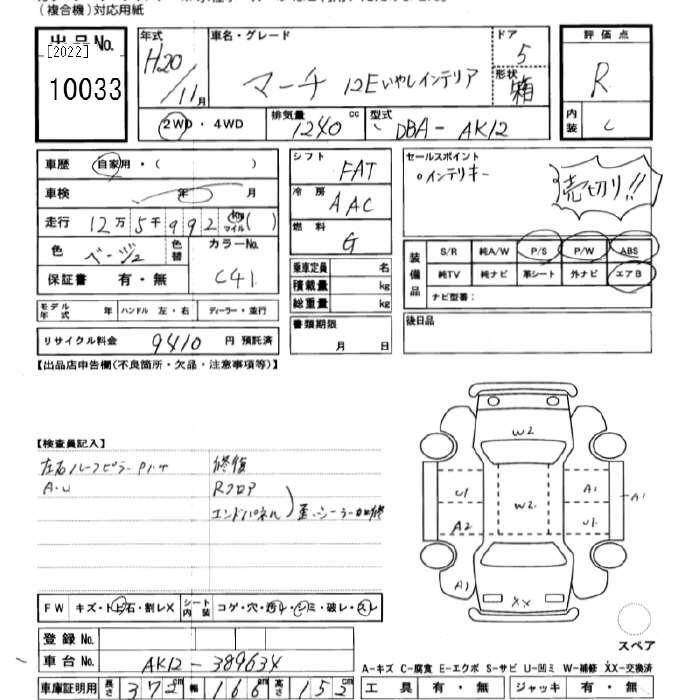 (複合機)対応用紙
出品No.
[2022]
10033
年式
H20
/11月
車名・グレード
マーチ 12Eいやしインテリア
ドア
5
形状
箱
評価点
R
内装
C
2WD・4WD
排気量
1240 cc
型式
DBA-AK12
車歴
自家用・( )
車検 年 月
走行
12万5千992
km
マイル
( )
色
ベージュ
色替
カラーNo.
C41
保証書 有・無
シフト
FAT
冷房
AAC
燃料
G
乗車定員 名
積載量 kg
総重量 kg
セールスポイント
○インテリキー
売切り!!
装備品
S/R 純A/W P/S P/W ABS
純TV 純ナビ 革シート 外ナビ エアB
ナビ型番:
モデル年式 年 ハンドル 左・右 ディーラー・並行
リサイクル料金 9410 円 預託済
書類期限
月 日
後日品
【出品店申告欄(不良箇所・欠品・注意事項等)】
【検査員記入】
左右ルーフピラー
修復
A・U
Rフロア
エンドパネル
W2
U1
W2
A1
A1
A2
U1
A1
XX
FW キズ・トビ石・割レX
シート内装
コゲ・穴・透レ・シミ・破レ・スレ
登録No.
車台No.
AK12-389634
スペア
A-キズ C-腐食 E-エクボ S-サビ U-凹ミ W-補修 XX-交換済
車庫証明用 長さ 372cm 幅 166cm 高さ 152cm
工具 有・無 ジャッキ 有・無